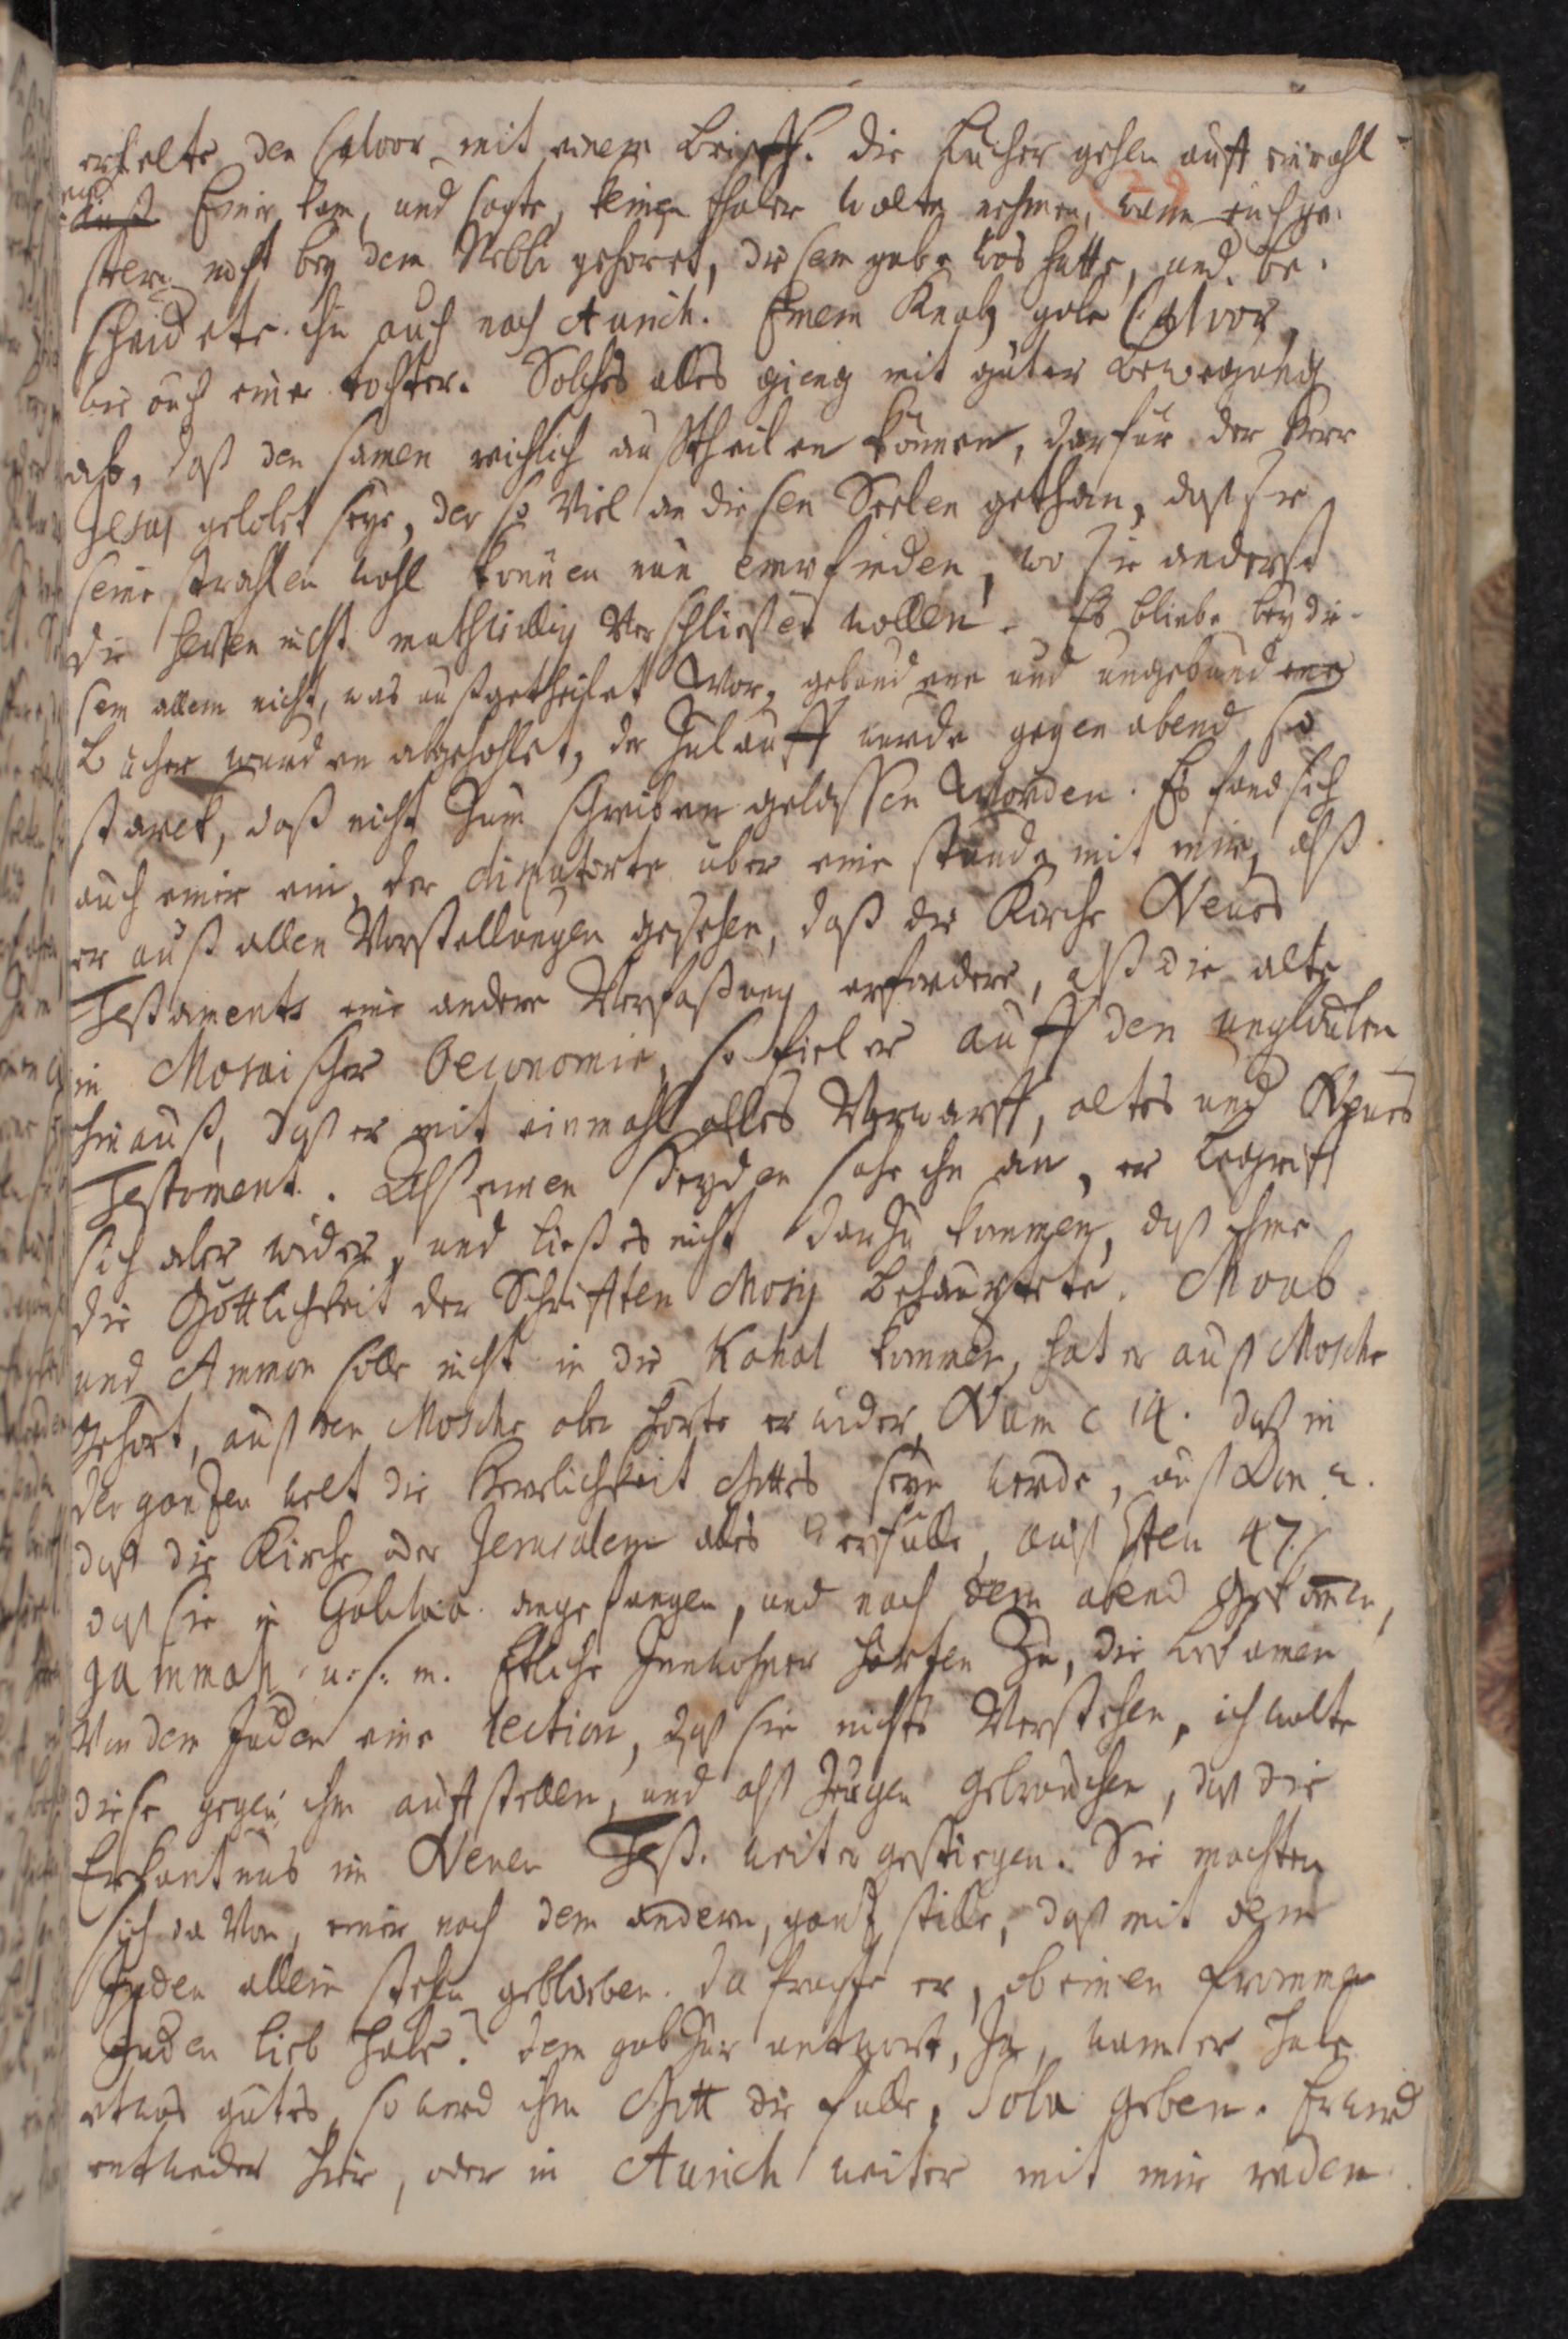 erhelte den Calvor mit einem brieff. die bücher gehen auff einmahl
Einer kam, und sagte, keinen thaler wolte nehmen, wann ich ge-
stern nicht bey dem Rebbi gehöret, diesem gabe was hatte, und be-
scheidete ihn auch nach Aurich. Einem Knaben gabe Calvor,
wie auch einer tochter. Solches alles gieng mit guter bewegung
ab, daß den samen reichlich außtheilen können, darfür der Herr
Jesus gelobet seye, der so viel an diesen Seelen gethan, daß sie
seine strahlen wohl können nun empfinden, wo sie anderst
die hertzen nicht muthwillig verschließen wollen. Es bliebe bey die-
sem allem nicht, was außgetheilet war, gebundene und ungebundene
bücher wurden abgehohlet, der Zulauff wurde gegen abend so
starck, daß nicht zum schreiben gelassen worden. Es fand sich
auch einer ein, der disputirte über eine stunde mit mir, alß
er auß allen Vorstellungen gesehen, daß die Kirche Neues
Testaments eine andere Verfaßung erfordere, alß die alte
in Mosaischer Oeconomie, so fiel er auff den unglauben
hinauß, daß er mit einmahl alles Verwarff, altes und Neues
Testament. Alß einen Heyden sahe ihn an, er begriff
sich aber wider, und ließ es nicht darzu kommen, daß ihme
die Göttlichkeit der Schrifften Mosis behauptete. Moab
und Ammon solle nicht in die Kahal kommen, hat er auß Mosche
gehört, auß dem Mosche aber hörte er wider, Num c 14. daß in
der gantzen welt die Herrlichkeit Gottes seyn werde, auß Dan 2.
daß die Kirche oder Jerusalem alles erfülle, auß 47.
daß sie in angefangen, und nach dem abend gekommen,
jammah u. s. m. Etliche Innwohner hörten Zu, die bekamen
Von dem Juden eine lection, daß sie nichts Verstehen, ich wolte
diese gegen ihm auffstellen, und alß Zeugen gebrauchen, daß die
Erkantnus im Neuen Test. weiter gestiegen. Sie machten
sich da Von, einer nach dem andern, gantz stille, daß mit dem
Juden allein stehn geblieben. da fragte er, ob einen frommen
Juden lieb habe? dem gab zur antwort, Ja, wann er habe
etwas gutes, so werd ihm Gott die fülle, geben. Er wird
entweder hier, oder in Aurich weiter mit mir reden.